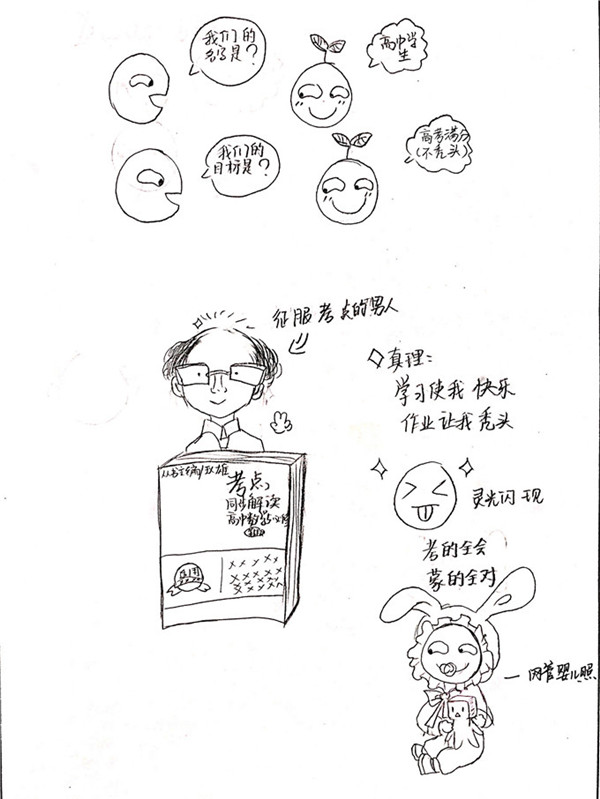 我们的
名字是？
高中学
生
我们的
目标是？
高考满分
(不秃头)
征服考点的男人
真理：
学习使我快乐
作业让我秃头
考点
同步解读
高中数学
灵光闪现
考的全会
蒙的全对
网管婴儿照